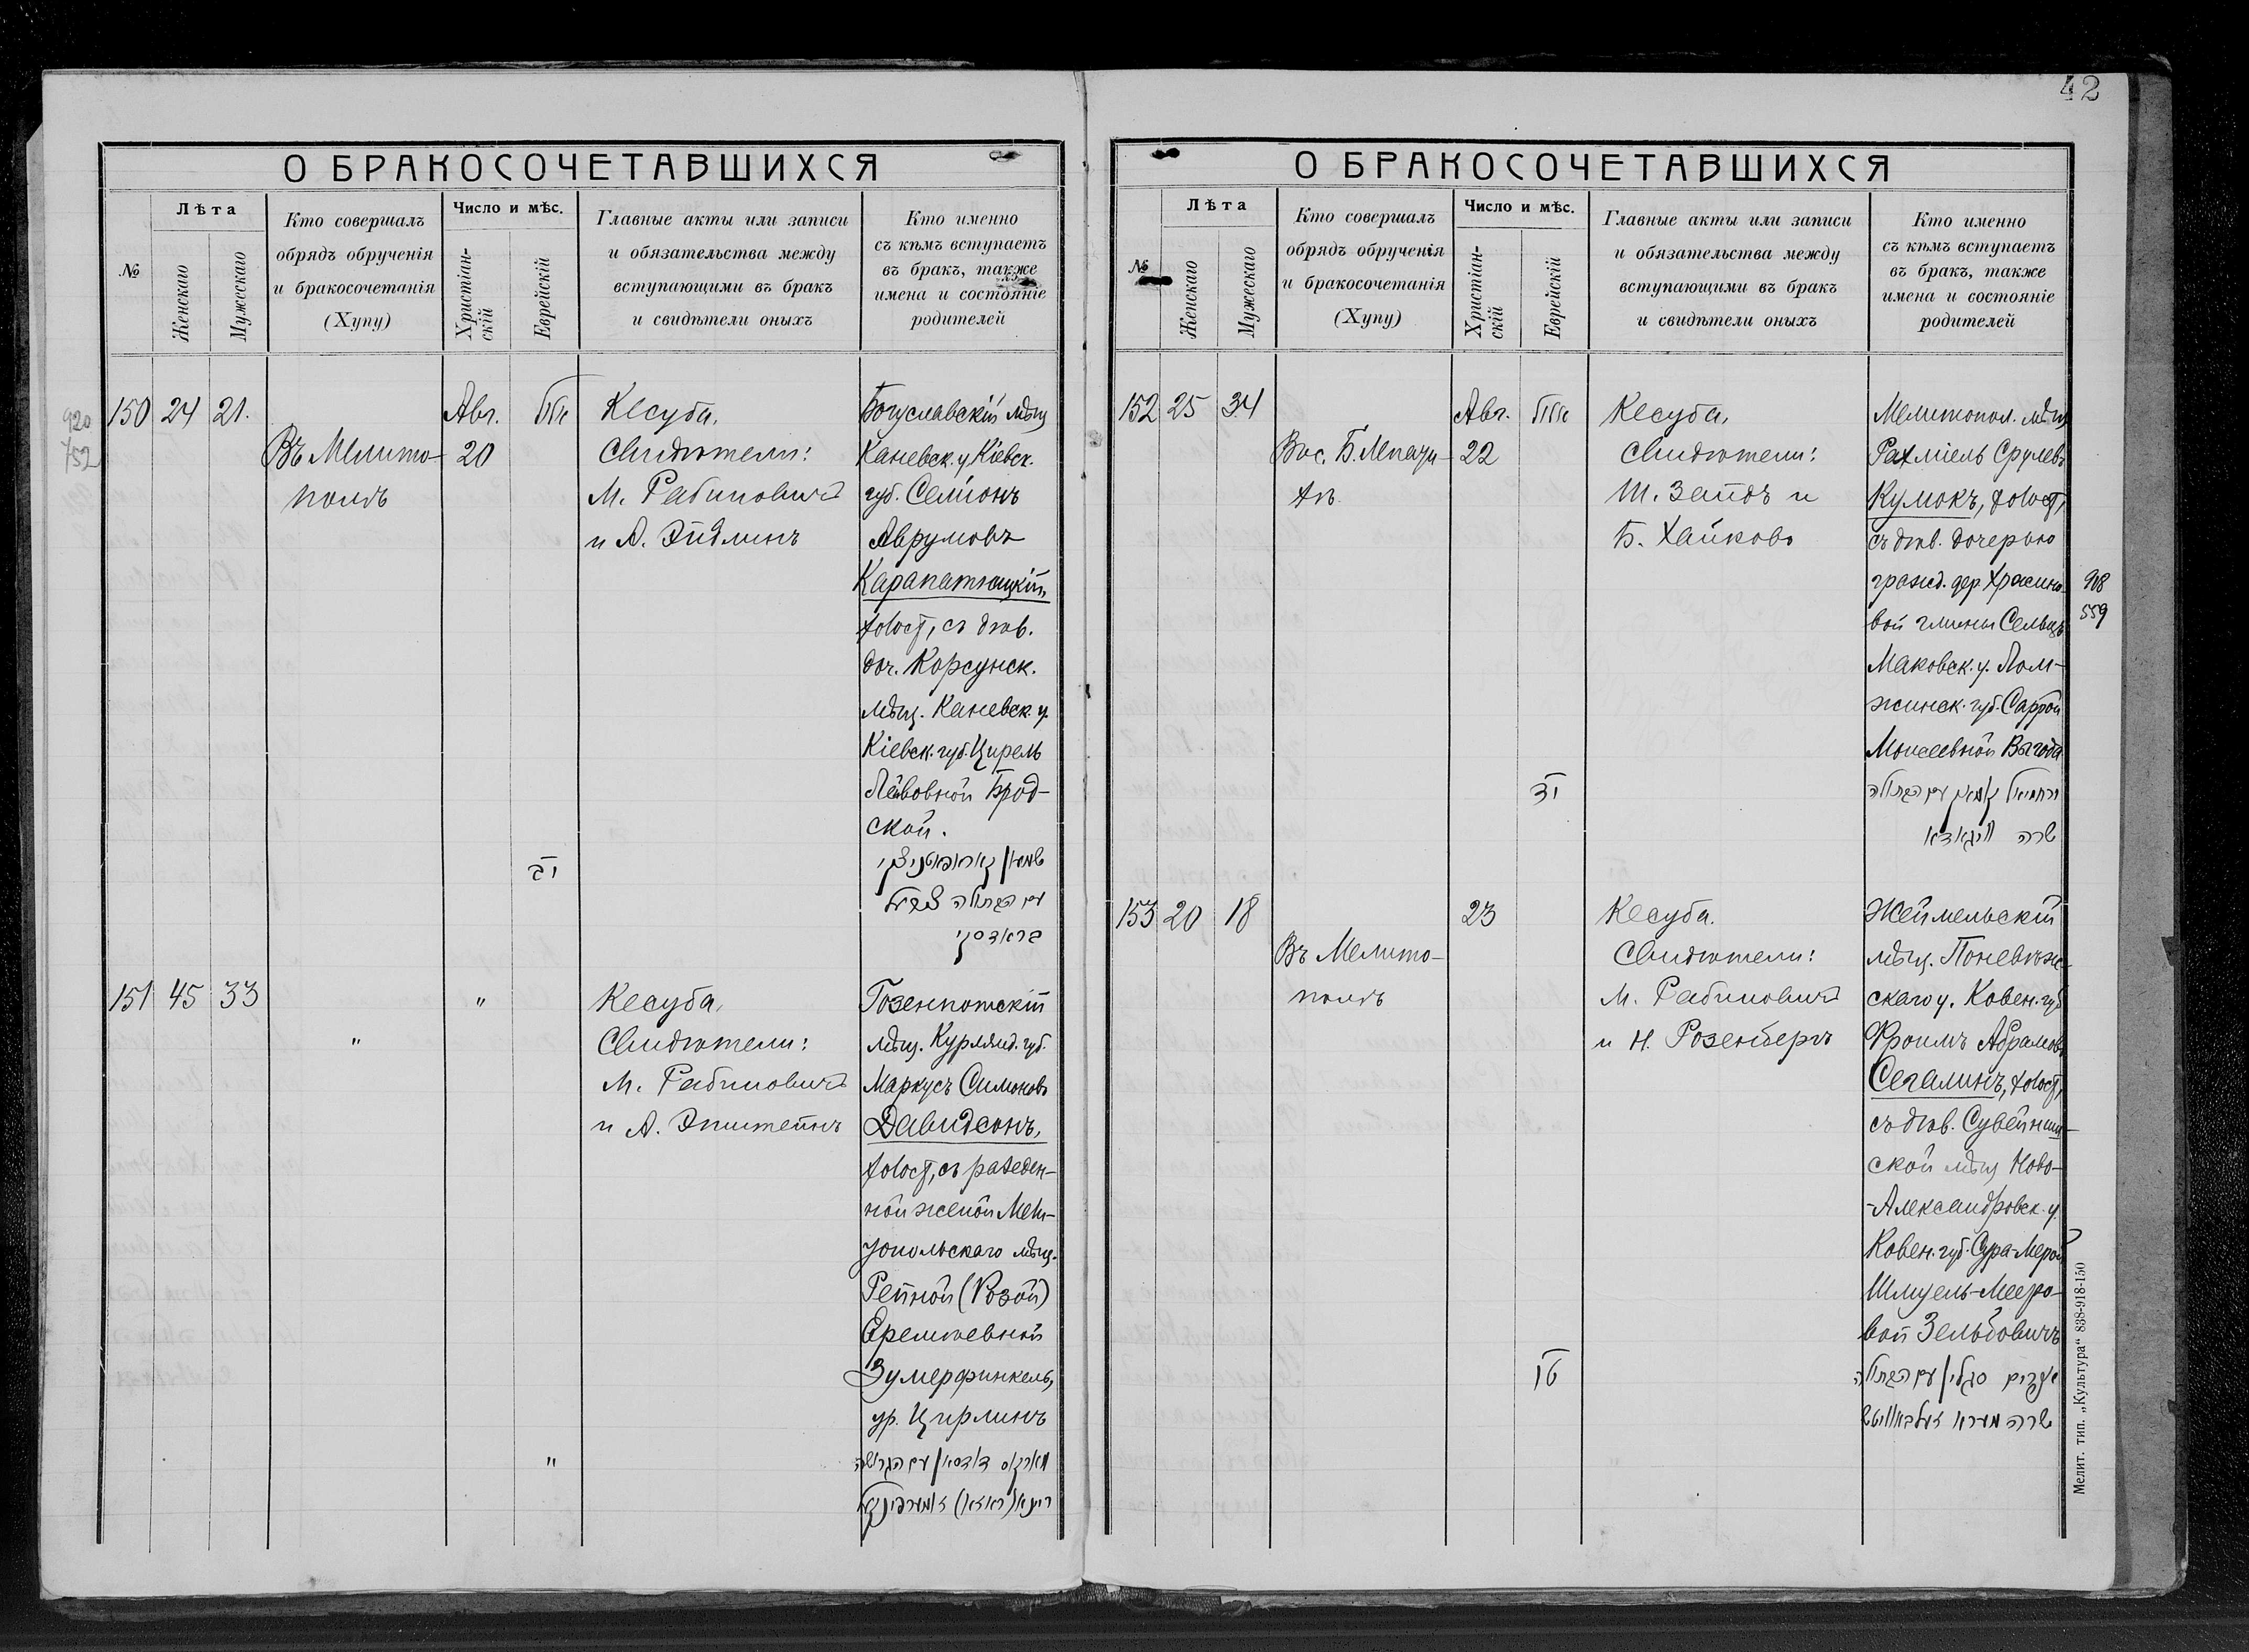 42
О БРАКОСОЧЕТАВШИХСЯ
№
Лѣта
Женскаго
Мужескаго
Кто совершалъ
обрядъ обрученія
и бракосочетанія
(Хупу)
Число и мѣс.
Христіан-
скій
Еврейскій
Главные акты или записи
и обязательства между
вступающими въ бракъ
и свидѣтели оныхъ
Кто именно
съ кѣмъ вступаетъ
въ бракъ, также
имена и состояніе
родителей
920
752
150 24 21.
Въ Мелито-
полѣ
Авг.
20
Кесуба,
Свидѣтели:
М. Рабиновичъ
и А. Эйдлинъ
Богуславскій мѣщ
Каневск. у Кіевск.
губ. Семіонъ
Аврумовъ
холост, съ дѣв.
доч. Корсунск.
мѣщ. Каневск. у.
Кіевск. губ. Цирель
Лейбовной Брод-
ской.
יב
עם הבתולה
בראדסקי
151 45 33
"
"
Кесуба,
Свидѣтели:
М. Рабиновичъ
и А. Эпштейнъ
Газенпотскій
мѣщ. Курлянд. губ.
Маркусъ Симоновъ
Давидсонъ,
холост, съ разведен-
ной женой Мели-
топольскаго мѣщ.
Рейной (Розой)
Еремѣевной
Зумерфинкель,
ур. Цирлинъ
"
עם הגרושה
О БРАКОСОЧЕТАВШИХСЯ
№
Лѣта
Женскаго
Мужескаго
Кто совершалъ
обрядъ обрученія
и бракосочетанія
(Хупу)
Число и мѣс.
Христіан-
скій
Еврейскій
Главные акты или записи
и обязательства между
вступающими въ бракъ
и свидѣтели оныхъ
Кто именно
съ кѣмъ вступаетъ
въ бракъ, также
имена и состояніе
родителей
152 25 34
Вос. Б. Лепати
хѣ
Авг.
22
Кесуба,
Свидѣтели:
Ш. Зайдъ и
Б. Хайковъ
Мелитопол. мѣщ
Рахміель Срулевъ
Кумокъ, холост,
съ дѣв. дочерью
гражд. дер.
Маковск. у. Лом-
жинск. губ. Саррой
Моисеевной Выгода
908
559
יד
עם הבתולה
שרה וויגאדא
153 20 18
Въ Мелито-
полѣ
23
Кесуба.
Свидѣтели:
М. Рабиновичъ
и Н. Розенбергъ
Жеймельскій
мѣщ. Поневѣж-
скаго у. Ковен. губ
Фроимъ Абрамовъ
Сегалинъ, холост,
съ дѣв. Сувейниш-
ской мѣщ Ново-
-Александровск. у.
Ковен. губ. Сура-Мерой
Шмуель-Мееро-
вой Зельбовичъ
טו
אפרים סגלין עם הבתולה
שרה מערא זעלבאוויטש
Мелит. тип. „Культура“ 838-918-150